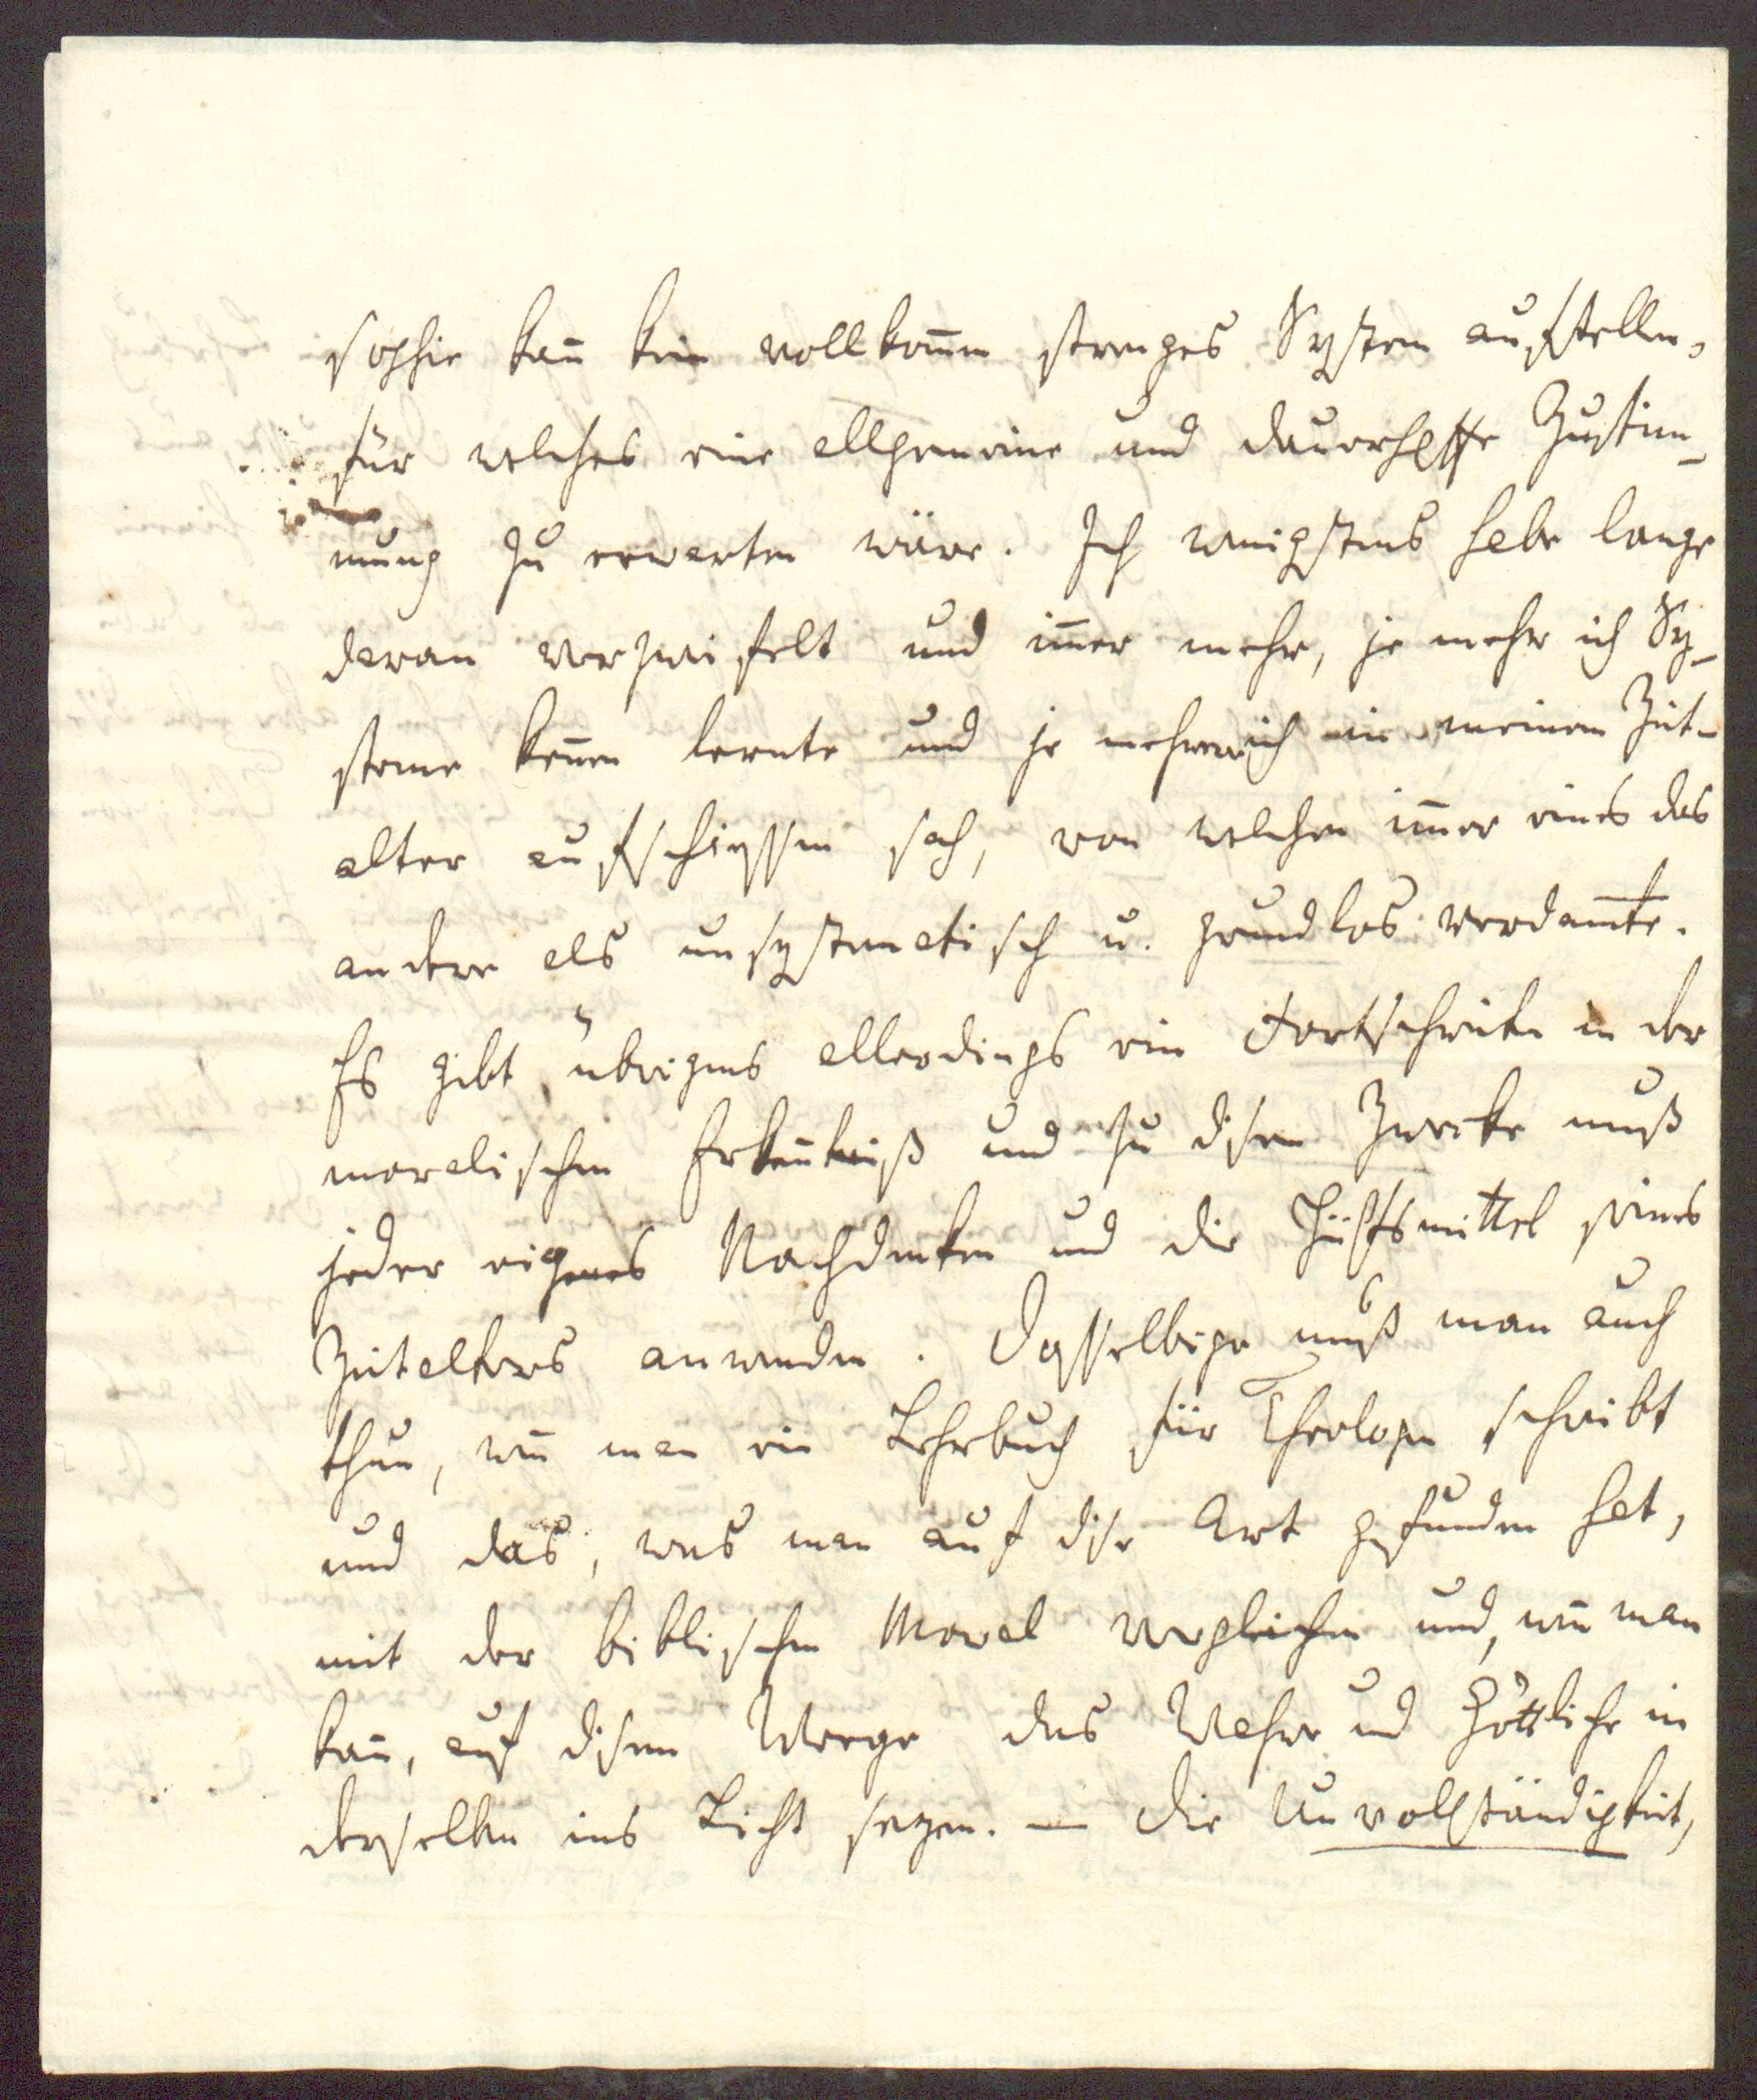 sophie kan̄ kein vollkom̄en strenges System aufstellen,
für welches eine allgemeine und dauerhaffte Zustim-
mung zu erwarten wäre. Ich wenigstens habe lange
daran verzweifelt und im̄er mehr, je mehr ich Sy-
steme ken̄en lernte und je mehrere ich in meinem Zeit-
alter aufschiessen sah, von welchen im̄er eines das
andere als unsystematisch u. grundlos verdam̄te.
Es gibt übrigens allerdings ein Fortschreiten in der
moralischen Erken̄tniß und zu disem Zwecke muß
jeder eigenes Nachdenken und die Hülfsmittel seines
Zeitalters anwenden. Dasselbige muß man auch
thun, wen̄ man ein Lehrbuch für Theologen schreibt
und das, was man auf dise Art gefunden hat,
mit der biblischen Moral vergleichen und, wen̄ man
kan̄, auf disem Weege das Wahre und Göttliche in
derselben ins Licht sezen. — Die Unvollständigkeit,